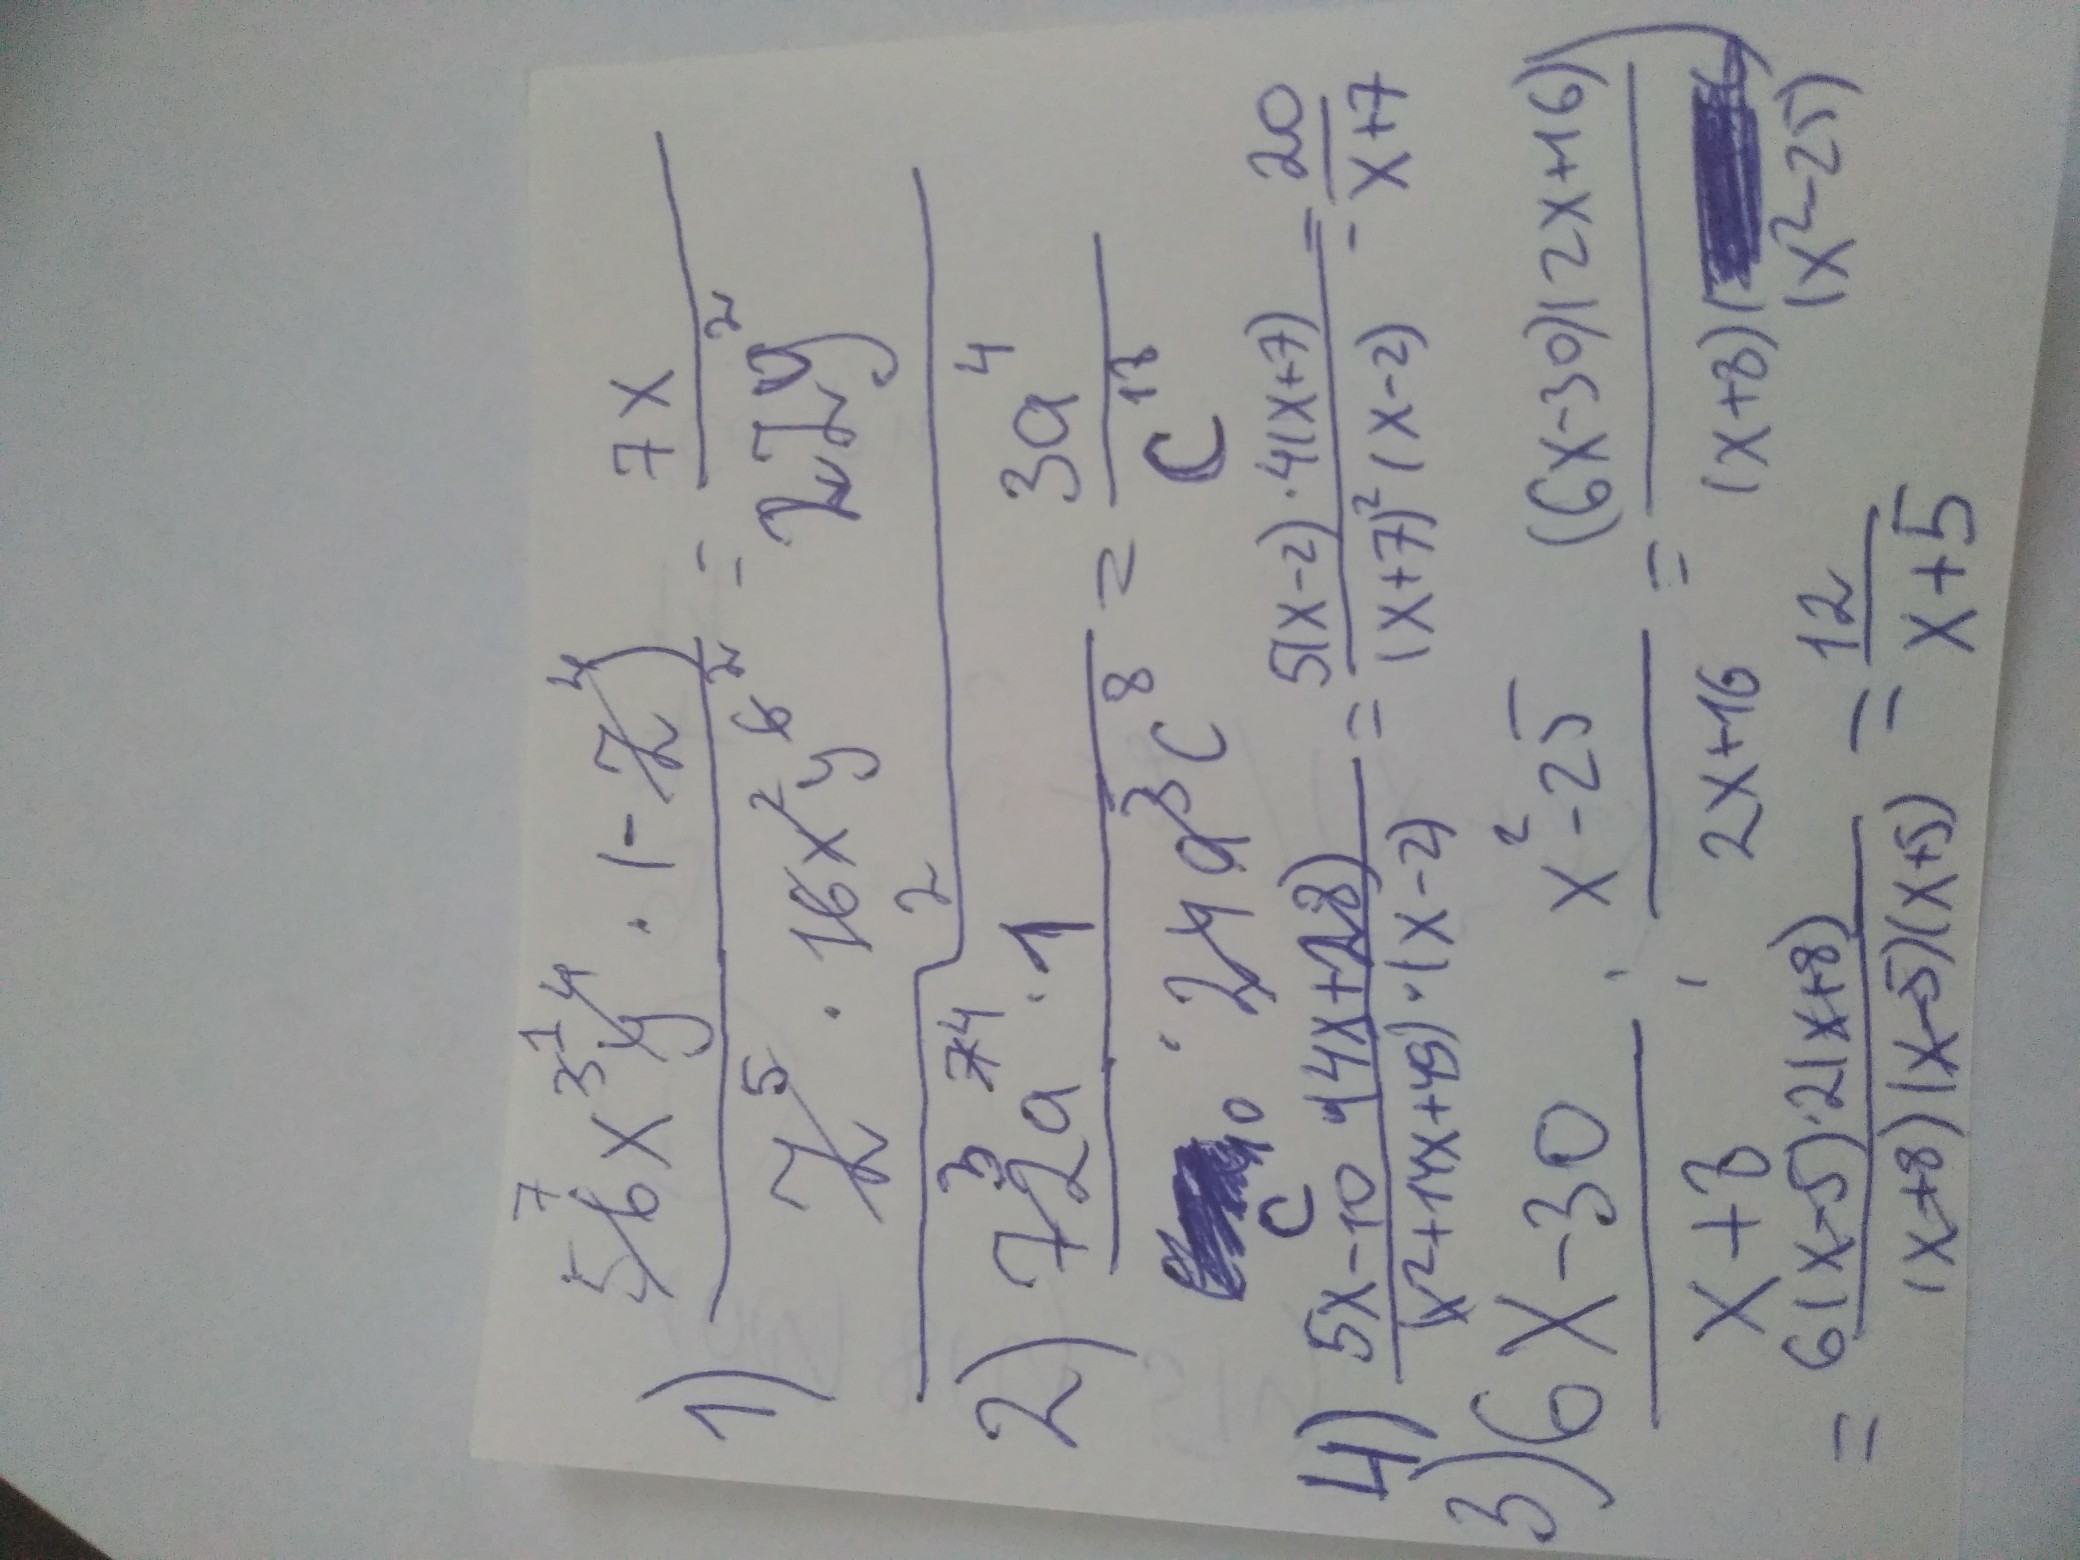 7 1
1) 56x³y⁴ · (-z⁴) / z⁵ · 16x²y⁶ = 7x / 2zy²
2) 72a⁷ · 1 / c¹⁰ · 24a³c⁸ = 3a⁴ / c¹⁸
4) 5x-10 · (4x+28) / (x²+14x+49) · (x-2) = 5(x-2) · 4(x+7) / (x+7)² (x-2) = 20 / x+7
3) 6x-30 / x+8 : x²-25 / 2x+16 = (6x-30)(2x+16) / (x+8)(x²-25)
= 6(x-5)·2(x+8) / (x+8)(x-5)(x+5) = 12 / x+5